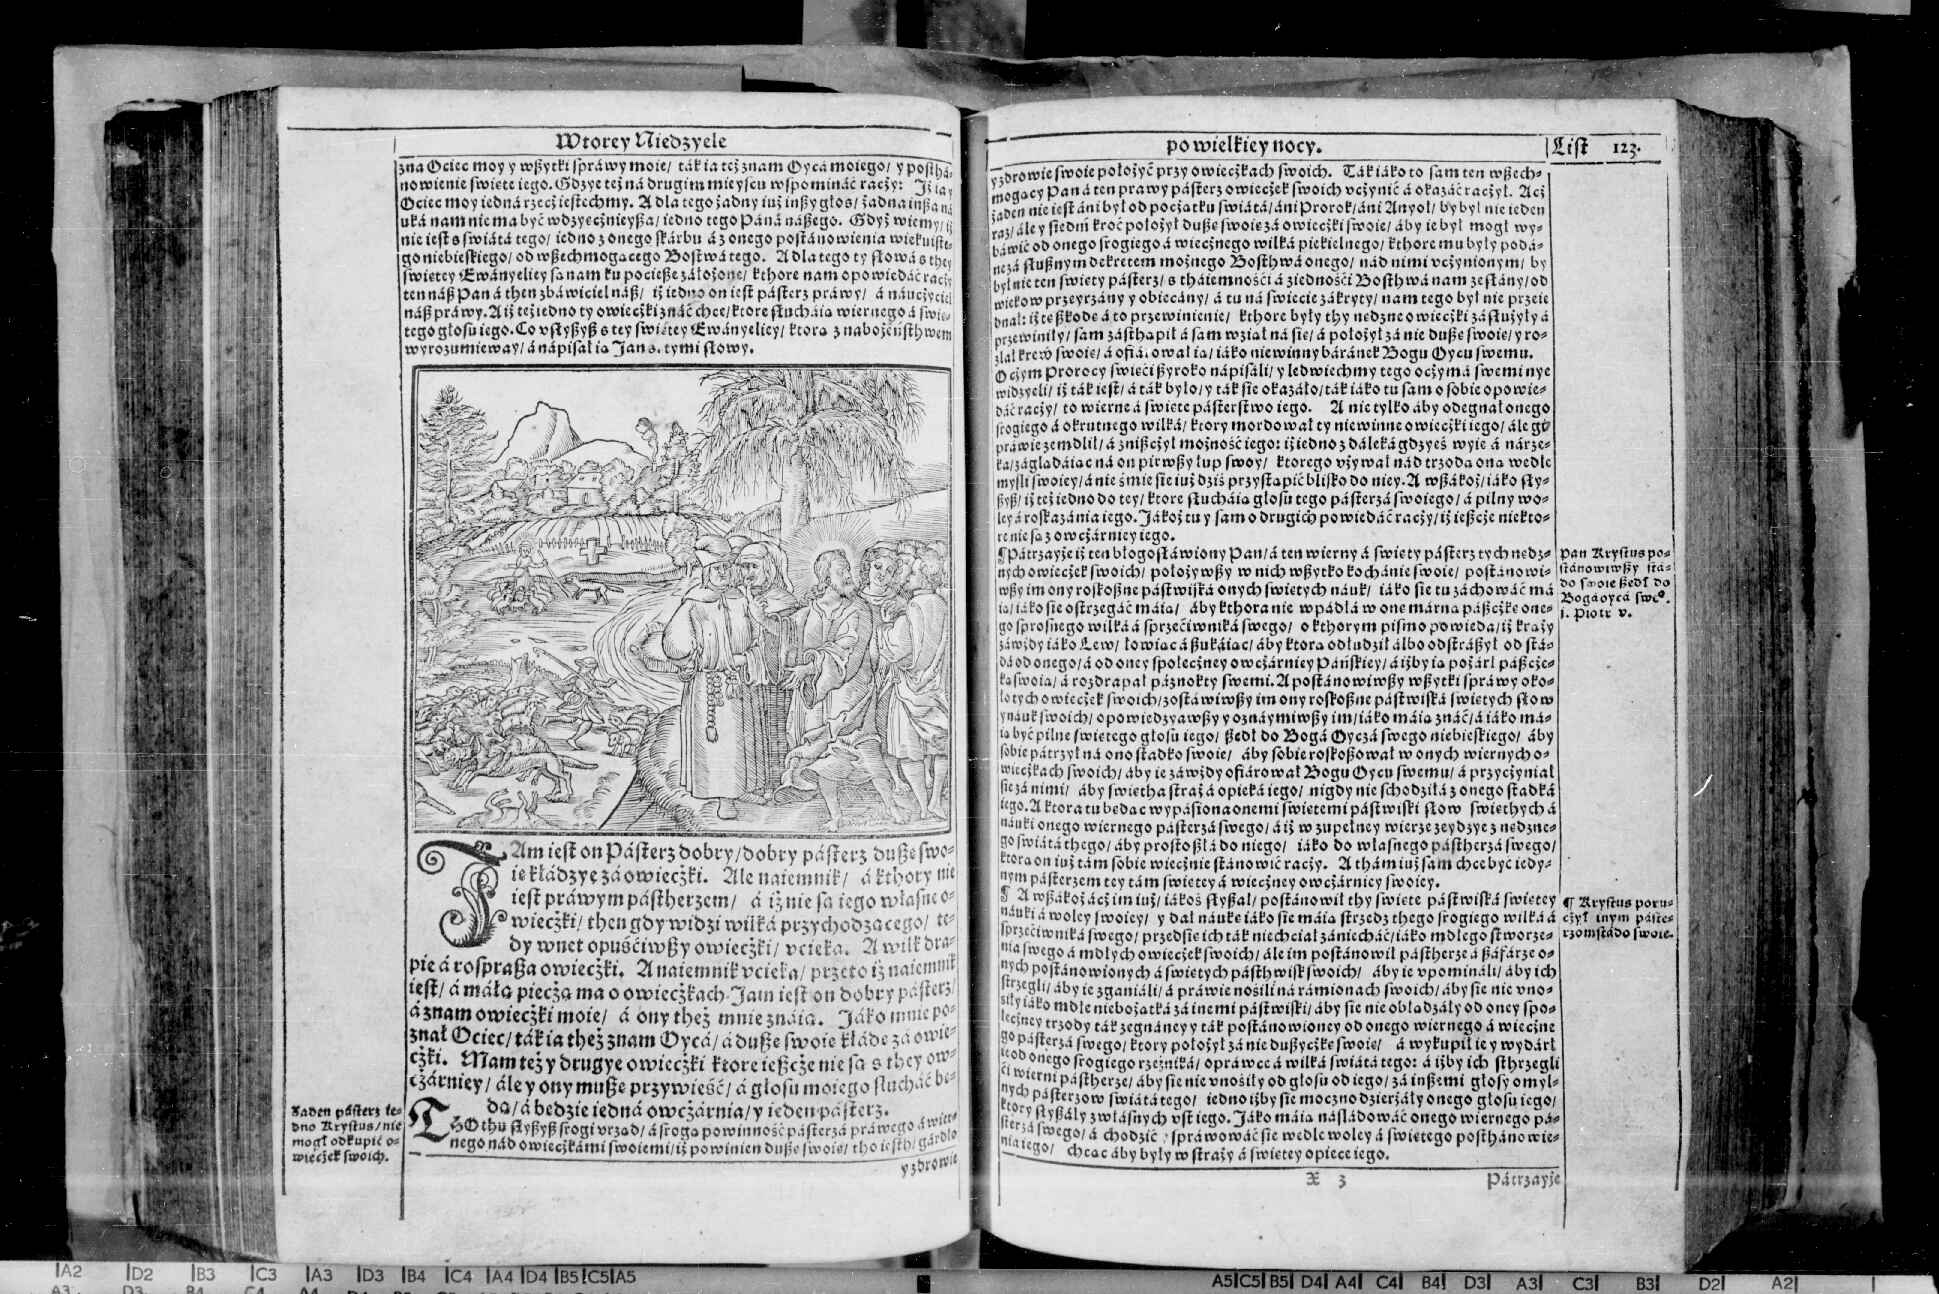 Wtorey Niedzyele
zna Ociec moy y wßytki spráwy moie/ ták ia też znam Oycá moiego/ y postha-
nowienie swięte iego. Gdzye też ná drugim mieyscu wspomináć raczy: Iż ia y
Ociec moy iedná rzecz iestechmy. A dla tego żadny iuż inßy głos/ żadna inßa ná
uká nam nie ma być wdzyecznieyßa/ iedno tego Páná náßego. Gdyż wiemy/ iż
nie iest s świátá tego/ iedno z onego skárbu á z onego postánowienia wiekuiste-
go niebieskiego/ od wßechmogącego Bostwá tego. A dla tego ty słowá s they
swiętey Ewányeliey są nam ku pocieße záłożone/ kthore nam opowiedáć raczy
ten náß Pan á then zbáwiciel náß/ iż iedno on iest pásterz práwy/ á náuczyciel
náß práwy. A iż też iedno ty owieczki znáć chce/ ktore słucháią wiernego á swię-
tego głosu iego. Co vsłyßyß s tey swiętey Ewányeliey/ ktorą z nabożeństhwem
wyrozumieway/ á nápisał ią Jan s. tymi słowy.
IAm iest on Pásterz dobry/ dobry pásterz dußę swo-
ię kłádzye zá owieczki. Ale naiemnik/ á kthory nie
iest práwym pástherzem/ á iż nie są iego własne o-
wieczki/ then gdy widzi wilká przychodzącego/ te-
dy wnet opuściwßy owieczki/ vcieka. A wilk dra-
pie á rospraßa owieczki. A naiemnik vcieka/ przeto iż naiemnik
iest/ á máłą pieczą ma o owieczkach. Jam iest on dobry pásterz/
á znam owieczki moie/ á ony theż mnie znáią. Jáko mnie po-
znał Ociec/ ták ia theż znam Oycá/ á dußę swoię kłádę zá owie-
czki. Mam też y drugye owieczki ktore ießcze nie są s they ow-
czárniey/ ále y ony mußę przywieść/ á głosu moiego słucháć bę-
dą/ á będzie iedná owczárnia/ y ieden pásterz.
TZO thu słyßyß srogi vrząd/ á srogą powinność pásterzá práwego á wier-
nego nád owieczkámi swoiemi/ iż powinien dußę swoię/ tho iesth/ gárdło
y zdrowie
Żaden pásterz ie-
dno Krystus/ nie
mogł odkupić o-
wieczek swoich.
po wielkiey nocy.
List 123.
y zdrowie swoie położyć przy owieczkach swoich. Ták iáko to sam ten wßech-
mogący Pan á ten práwy pásterz owieczek swoich vczynić á okazáć raczył. Acz
żaden nie iest áni był od początku swiátá/ áni Prorok/ áni Anyoł/ by był nie ieden
raz/ ále y siedm kroć położył dußę swoię zá owieczki swoie/ áby ie był mogł wy-
báwić od onego srogiego á wiecznego wilká piekielnego/ kthore mu były podá-
ne zá słußnym dekretem możnego Bosthwá onego/ nád nimi vczynionym/ by
był nie ten swięty pásterz/ s tháiemności á ziedności Bosthwá nam zesłány/ od
wiekow przeyrzány y obiecány/ á tu ná swiecie zákryty/ nam tego był nie przeie
dnał: iż tę ßkodę á to przewinienie/ kthore były thy nędzne owieczki zásłużyły á
przewiniły/ sam zásthąpił á sam wziął ná się/ á położył zá nie dußę swoię/ y ro-
zlał krew swoię/ á ofiárował ią/ iáko niewinny báránek Bogu Oycu swemu.
O czym Prorocy swięci ßyroko nápisáli/ y ledwiechmy tego oczymá swemi nye
widzyeli/ iż ták iest/ á ták było/ y ták się okazáło/ ták iáko tu sam o sobie opowie-
dáć raczy/ to wierne á swięte pásterstwo iego. A nie tylko áby odegnał onego
srogiego á okrutnego wilká/ ktory mordował ty niewinne owieczki iego/ ále go
práwie zemdlił/ á znißczył możność iego: iż iedno z dáleká gdzyeś wyie á nárze-
ka/ záglądáiąc ná on pirwßy łup swoy/ ktorego vżywał nád trzodą oną wedle
myśli swoiey/ á nie śmie się iuż dziś przystąpić blisko do niey. A wßákoż/ iáko sły-
ßyß/ iż też iedno do tey/ ktore słucháią głosu tego pásterzá swoiego/ á pilny wo-
ley á roskazánia iego. Jákoż tu y sam o drugich powiedáć raczy/ iż ießcze niekto-
re nie są z owczárniey iego.
¶ Pátrzayże iż ten błogosłáwiony Pan/ á ten wierny á swięty pásterz tych nędz-
nych owieczek swoich/ położywßy w nich wßytko kochánie swoie/ postánowi-
wßy im ony roskoßne pástwiská onych swiętych náuk/ iáko się tu záchowáć má
ią/ iáko się ostrzegáć máią/ áby kthora nie wpádłá w onę marną páßczękę one-
go sprosnego wilká á sprzeciwniká swego/ o kthorym pismo powieda/ iż krąży
záwżdy iáko Lew/ łowiąc á ßukáiąc/ áby ktorą odłudził álbo odstráßył od stá-
dá od onego/ á od oney społeczney owczárniey Páńskiey/ á iżby ią pożarł páßczę-
ką swoią/ á rozdrapał páznokty swemi. A postánowiwßy wßytki spráwy oko-
ło tych owieczek swoich/ zostáwiwßy im ony roskoßne pástwiská swiętych słow
y náuk swoich/ opowiedzyawßy y oznáymiwßy im/ iáko máią znáć/ á iáko má-
ią być pilne swiętego głosu iego/ ßedł do Bogá Oyczá swego niebieskiego/ áby
sobie pátrzył ná ono stádko swoie/ áby sobie roskoßował w onych wiernych o-
wieczkach swoich/ áby ie záwżdy ofiárował Bogu Oycu swemu/ á przyczyniał
się zá nimi/ áby swięthá straż á opieká iego/ nigdy nie schodziłá z onego stadká
iego. A ktora tu będąc wypásiona onemi swiętemi pástwiski słow swiethych á
náuki onego wiernego pásterzá swego/ á iż w zupełney wierze zeydzye z nędzne-
go swiátá thego/ áby prosto ßłá do niego/ iáko do własnego pástherzá swego/
ktorą on iuż tám sobie wiecznie stánowić raczy. A thám iuż sam chce być iedy-
nym pásterzem tey tám swiętey á wieczney owczárniey swoiey.
¶ A wßákoż ácz im iuż/ iákoś słyßał/ postánowił thy swięte pástwiská swiętey
náuki á woley swoiey/ y dał náukę iáko się máią strzedz thego srogiego wilká á
sprzeciwniká swego/ przedsię ich ták niechciał zániecháć/ iáko mdłego stworze-
nia swego á mdłych owieczek swoich/ ále im postánowił pástherze á ßáfárze o-
nych postánowionych á swiętych pásthwisk swoich/ áby ie vpomináli/ áby ich
strzegli/ áby ie zgániáli/ á práwie nosili ná rámionach swoich/ áby się nie vno-
siły iáko mdłe niebożątká zá inemi pástwiski/ áby się nie obłądzáły od oney spo-
łeczney trzody ták zegnáney y ták postánowioney od onego wiernego á wieczne
go pásterzá swego/ ktory położył zá nie dußyczkę swoię/ á wykupił ie y wydárł
ie od onego srogiego rzeźniká/ opráwce á wilká swiátá tego: á iżby ich sthrzegli
ći wierni pástherze/ áby się nie vnosiły od głosu od iego/ zá inßemi głosy omyl-
nych pásterzow swiátá tego/ iedno iżby się mocno dzierżáły onego głosu iego/
ktory słyßáły z własnych vst iego. Jáko máią násládowáć onego wiernego pá-
sterzá swego/ á chodzić/ spráwowáć się wedle woley á swiętego posthánowie-
nia iego/ chcąc áby były w straży á swiętey opiece iego.
X 3
Pátrzayże
Pan Krystus po-
stánowiwßy stá-
do swoie ßedł do
Bogá oycá swe°.
j. Piotr v.
¶ Krystus poru-
czył inym páste-
rzom stádo swoie.
A2 D2 B3 C3 A3 D3 B4 C4 A4 D4 B5 C5 A5
A5 C5 B5 D4 A4 C4 B4 D3 A3 C3 B3 D2 A2